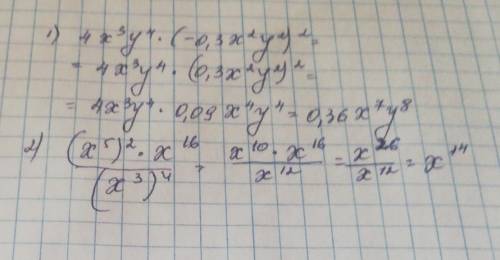 1) 4x³y⁴ · (-0,3x²y²)² =
= 4x³y⁴ · (0,3x²y²)² =
= 4x³y⁴ · 0,09 x⁴y⁴ = 0,36x⁷y⁸
2) (x⁵)² · x¹⁶ / (x³)⁴ = x¹⁰ · x¹⁶ / x¹² = x²⁶ / x¹² = x¹⁴